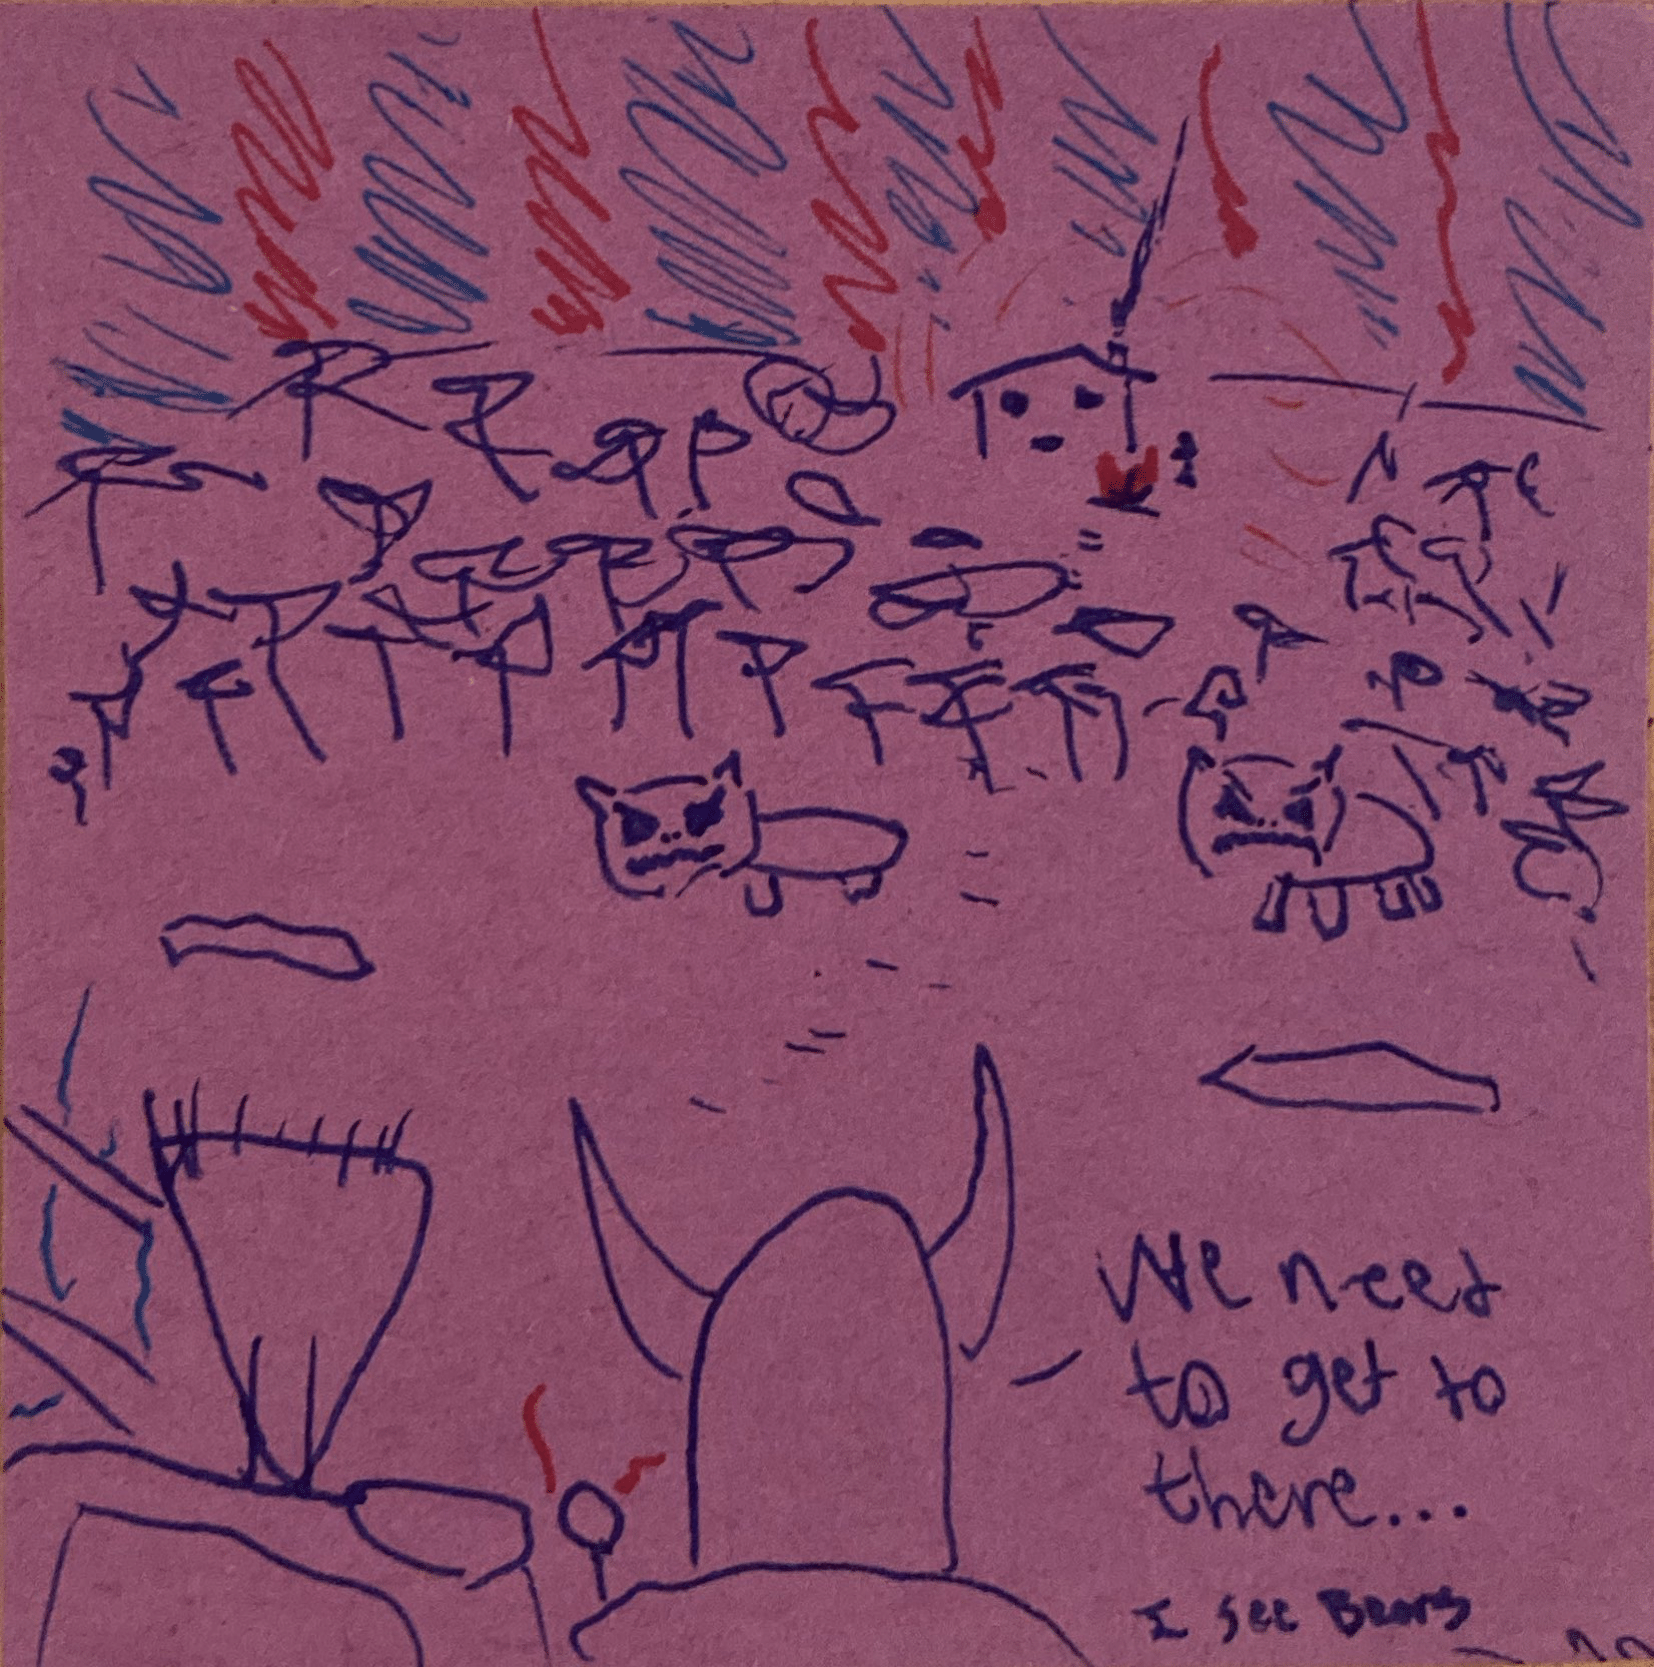 We need
to get to
there...
I see Bears